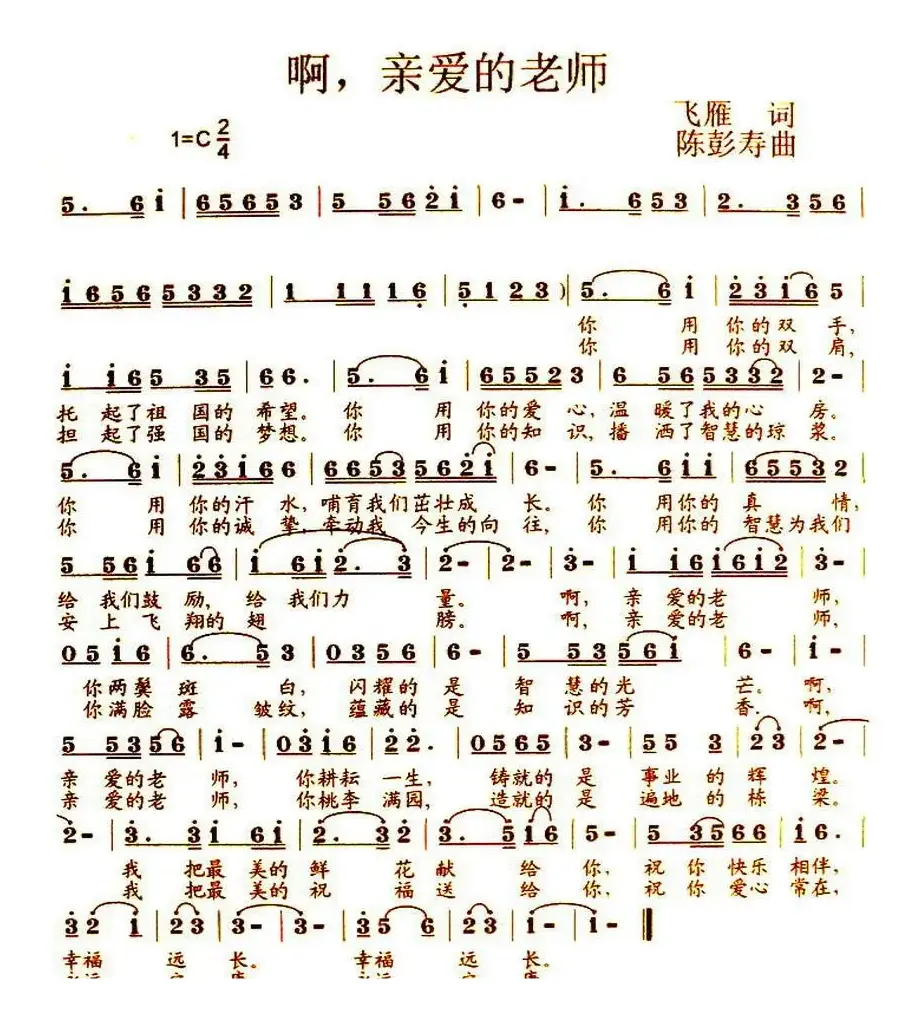 啊，亲爱的老师
飞雁 词
1=C 2/4
陈彭寿曲
5. 6 i | 6 5 6 5 3 | 5 5 6 2 i | 6 - | i. 6 5 3 | 2. 3 5 6 |
i 6 5 6 5 3 3 2 | 1 1 1 1 6 | 5 1 2 3 ) | 5. 6 i | 2 3 i 6 5 |
你 用 你的双 手，
你 用 你的双 肩，
i i 6 5 3 5 | 6 6. | 5. 6 i | 6 5 5 2 3 | 6 5 6 5 3 3 2 | 2 - |
托 起了祖 国的 希望。 你 用 你的爱 心，温 暖了我的心 房。
担 起了强 国的 梦想。 你 用 你的知 识，播 洒了智慧的琼 浆。
5. 6 i | 2 3 i 6 6 | 6 6 5 3 5 6 2 i | 6 - | 5. 6 i i | 6 5 5 3 2 |
你 用 你的汗 水，哺育我们茁壮成 长。 你 用你的 真 情，
你 用 你的诚 挚，牵动我 今生的向 往， 你 用你的 智慧为我们
5 5 6 i 6 6 | i 6 i 2. 3 | 2 - | 2 - | 3 - | i i 6 i 6 i 2 | 3 - |
给 我们鼓 励，给 我们力 量。 啊， 亲 爱的老 师，
安 上飞 翔的 翅 膀。 啊， 亲 爱的老 师，
0 5 i 6 | 6. 5 3 | 0 3 5 6 | 6 - | 5 5 3 5 6 i | 6 - | i - |
你两鬓 斑 白， 闪耀的 是 智 慧的光 芒。 啊，
你满脸 露 皱纹， 蕴藏的 是 知 识的芳 香. 啊，
5 5 3 5 6 | i - | 0 3 i 6 | 2 2. | 0 5 6 5 | 3 - | 5 5 3 | 2 3 | 2 - |
亲 爱的老 师， 你耕耘 一生， 铸就的 是 事业 的 辉 煌。
亲 爱的老 师， 你桃李 满园， 造就的 是 遍地 的 栋 梁。
2 - | 3. 3 i 6 i | 2. 3 2 | 3. 5 1 6 | 5 - | 5 3 5 6 6 | i 6. |
我 把最 美的 鲜 花 献 给 你，祝 你 快乐 相伴，
我 把最 美的 祝 福 送 给 你，祝 你 爱心 常在，
3 2 1 | 2 3 | 3 - | 3 - | 3 5 6 | 2 3 | 1 - | 1 - ‖
幸福 远 长。 幸福 远 长。